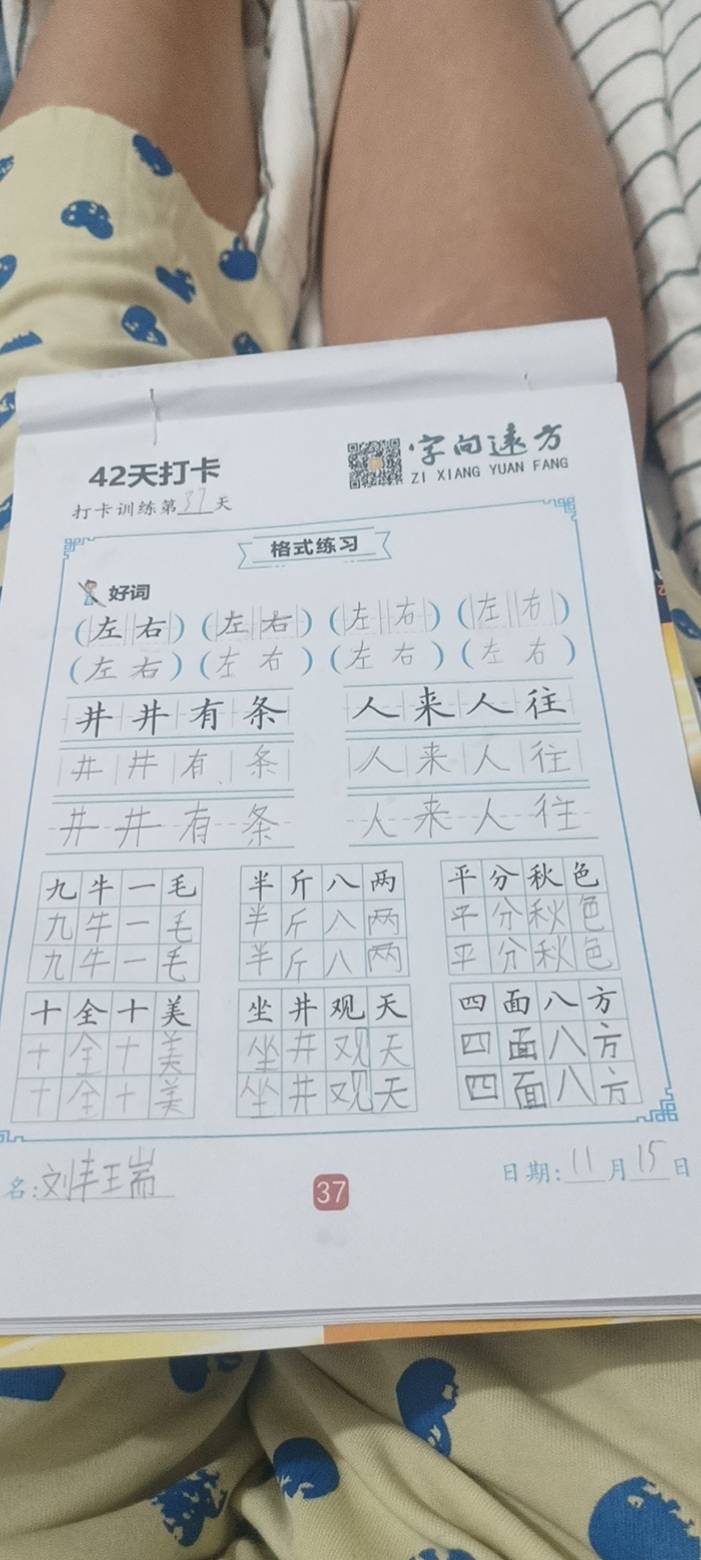 42天打卡
字向远方
ZI XIANG YUAN FANG
打卡训练第37天
格式练习
好词
(左右)(左右)(左右)(左右)
(左右)(左右)(左右)(左右)
井井有条 人来人往
井井有条 人来人往
井井有条 人来人往
九牛一毛 半斤八两 平分秋色
九牛一毛 半斤八两 平分秋色
九牛一毛 半斤八两 平分秋色
十全十美 坐井观天 四面八方
十全十美 坐井观天 四面八方
十全十美 坐井观天 四面八方
名:刘 日期:11月15日
37